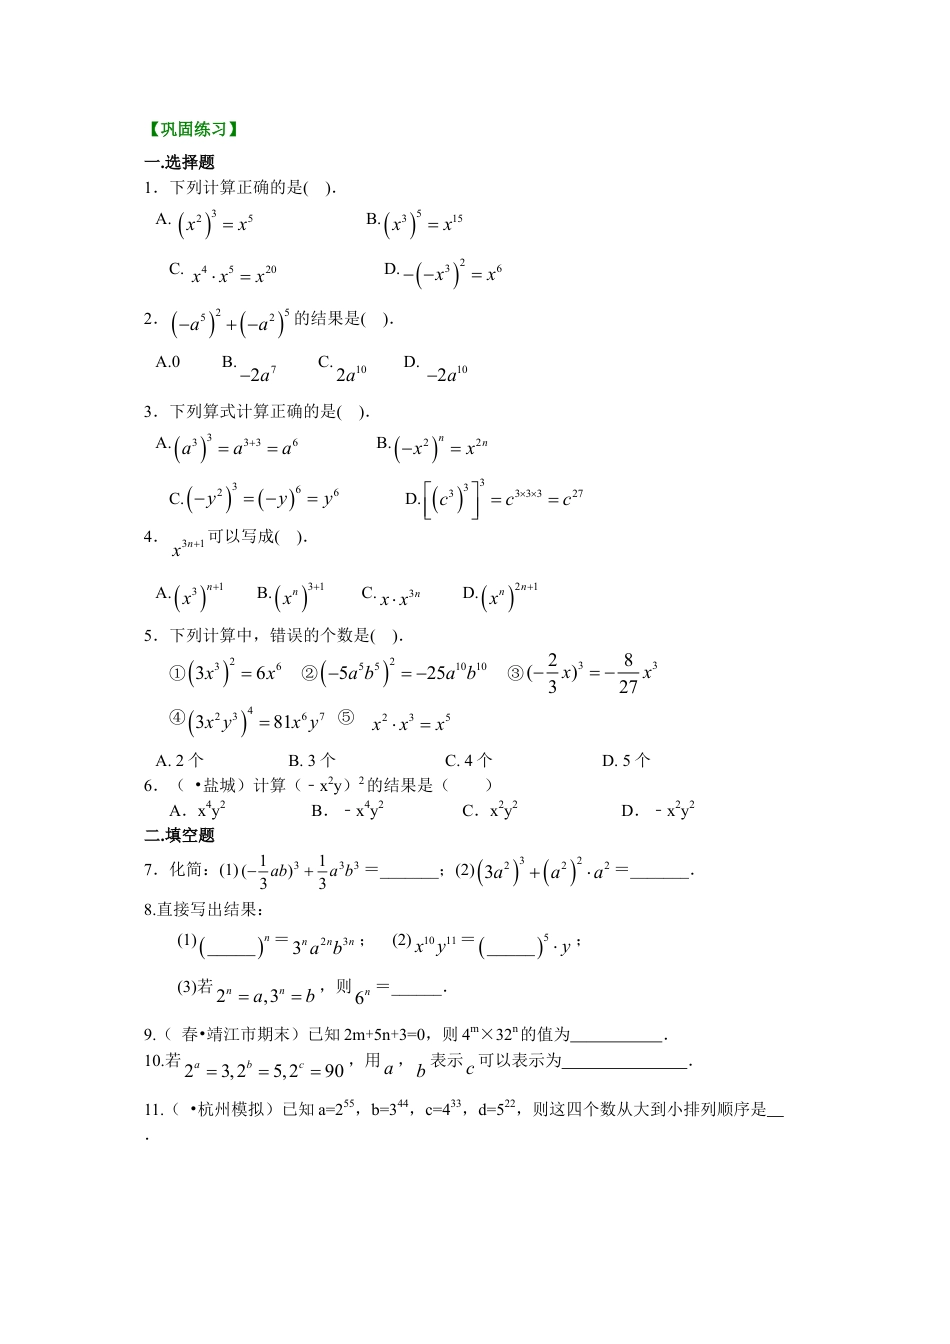 【巩固练习】
一.选择题
1．下列计算正确的是(　)．
A. (x²)³ = x⁵　B. (x³)⁵ = x¹⁵
C. x⁴·x⁵ = x²⁰　D. −(−x³)² = x⁶
2．(−a⁵)² + (−a²)⁵ 的结果是(　)．
A.0　B. −2a⁷　C. 2a¹⁰　D. −2a¹⁰
3．下列算式计算正确的是(　)．
A. (a³)³ = a³⁺³ = a⁶　B. (−x²)ⁿ = x²ⁿ
C. (−y²)³ = (−y)⁶ = y⁶　D. [(c³)³]³ = c^(3×3×3) = c²⁷
4．x³ⁿ⁺¹ 可以写成(　)．
A. (x³)ⁿ⁺¹　B. (xⁿ)³⁺¹　C. x·x³ⁿ　D. (xⁿ)²ⁿ⁺¹
5．下列计算中，错误的个数是(　)．
①(3x³)² = 6x⁶　②(−5a⁵b⁵)² = −25a¹⁰b¹⁰　③(−2/3 x)³ = −8/27 x³
④(3x²y³)⁴ = 81x⁶y⁷　⑤ x²·x³ = x⁵
A. 2 个　B. 3 个　C. 4 个　D. 5 个
6．（ •盐城）计算（﹣x²y）²的结果是（　　）
A．x⁴y²　B．﹣x⁴y²　C．x²y²　D．﹣x²y²
二.填空题
7．化简：(1) (−1/3 ab)³ + 1/3 a³b³ ＝_______；(2) (3a²)³ + (a²)²·a² ＝_______．
8.直接写出结果：
(1) (______)ⁿ ＝ 3ⁿa²ⁿb³ⁿ；　(2) x¹⁰y¹¹ ＝ (______)⁵·y；
(3)若 2ⁿ = a,3ⁿ = b，则 6ⁿ ＝______．
9.（ 春•靖江市期末）已知 2m+5n+3=0，则 4ᵐ×32ⁿ的值为___________．
10.若 2ᵃ = 3, 2ᵇ = 5, 2ᶜ = 90，用 a，b 表示 c 可以表示为_______________．
11.（ •杭州模拟）已知 a=2⁵⁵，b=3⁴⁴，c=4³³，d=5²²，则这四个数从大到小排列顺序是__
．